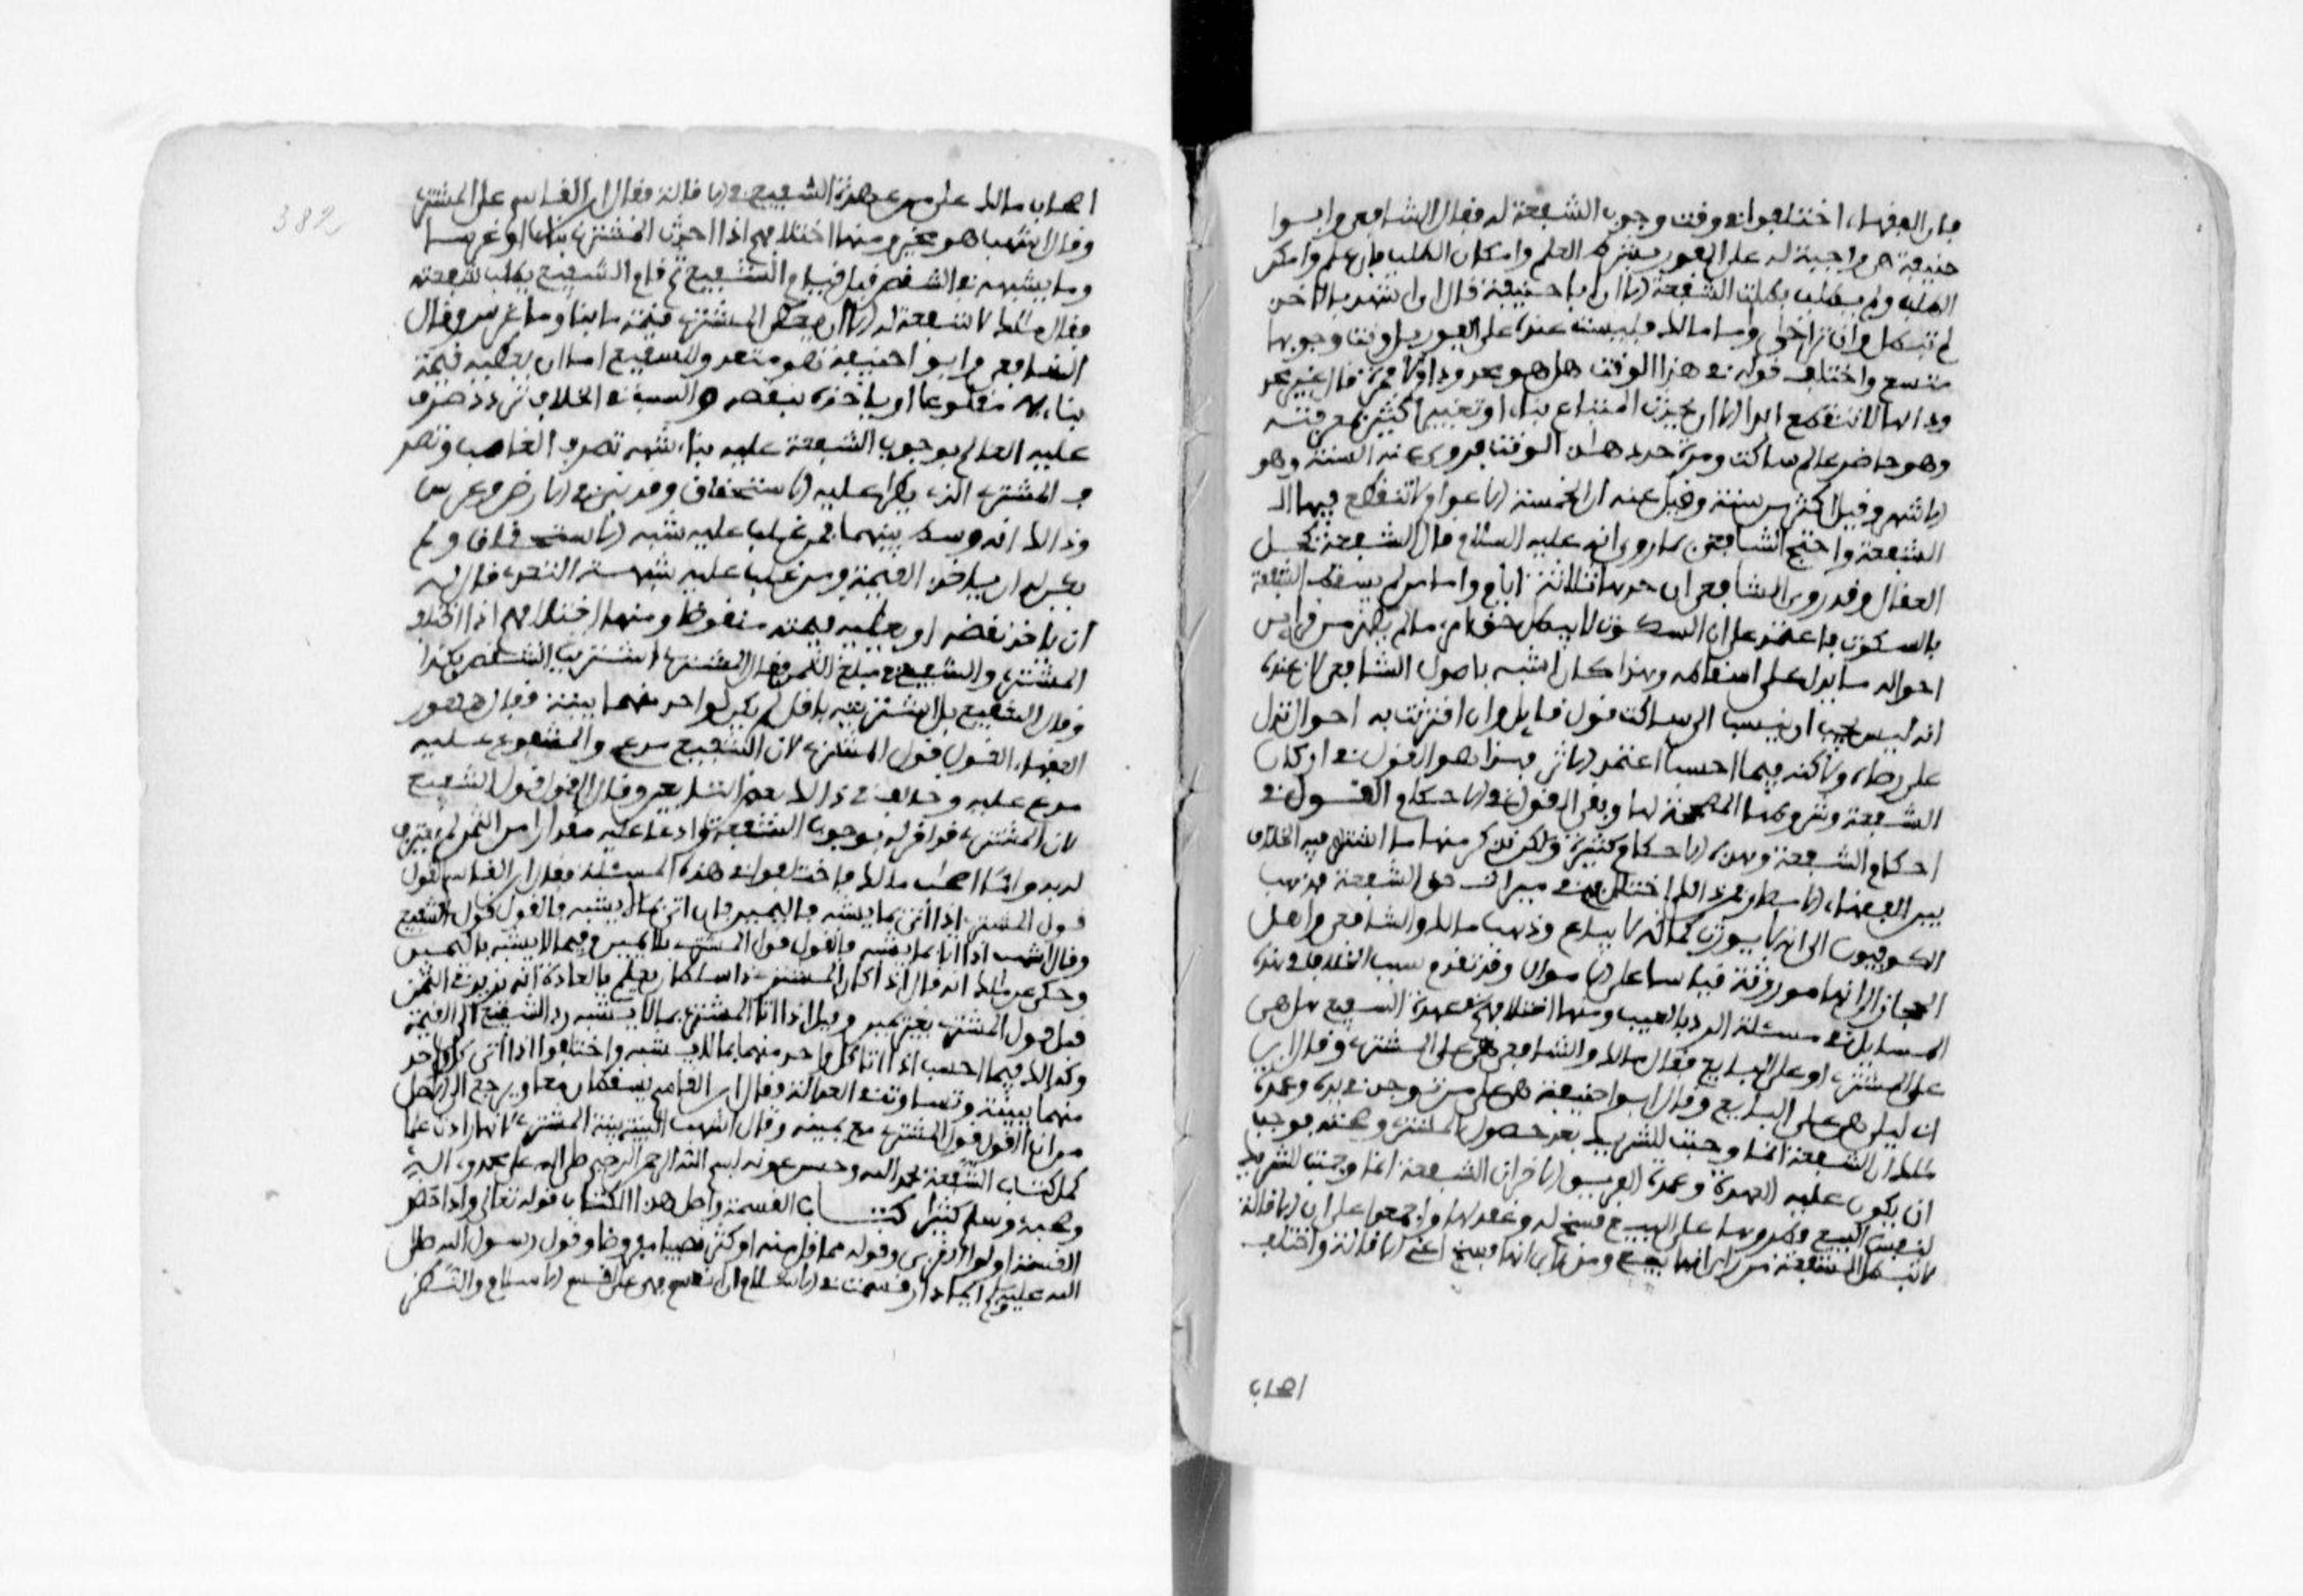 فان الفقهاء اختلفوا في وقت وجوب الشفعة له فقال الشافعي وابوا
حنيفة هي واجبة له على الفور بشرط العلم وامكان الطلب فان علم وامكن
الطلب ولم يطلب بطلت الشفعة الا ان ابا حنيفة قال ان اشهد بالاخذ
لم تبطل وان تراخى واما مالك فليست عنده على الفور بل وقت وجوبها
متسع واختلف قوله في هذا الوقت هل هو محدود او لا فمرة قال غير محد
ود انها لا تنقطع ابدا الا ان يحدث المبتاع بناء او تغييرا كثيرا بمعرفته
وهو حاضر عالم ساكت ومرة حدد هذا الوقت فروي عنه السنة وهو
الاشهر وقيل اكثر من سنة وقيل عنه ان الخمسة الاعوام لا تنقطع فيها ا
الشفعة واحتج الشافعي بما روي انه عليه السلام قال الشفعة كحل
العقال وقد روي الشافعي ان حدها ثلاثة ايام واما من لم يسقط الشفعة
بالسكوت فاعتمد على ان السكوت لا يبطل حق امرئ ما لم يظهر من قرائن
احواله ما يدل على اسقاطه وهذا كان اشبه باصول الشافعي لان عنده
انه ليس يجب ان ينسب الى ساكت قول قايل وان اقترنت به احوال تدل
على رضاه ولاكنه فيما احسب اعتمد الاثر فهذا هو القول في اركان
الشفعة وشروطها المصححة لها وبقي القول في الاحكام القول في
احكام الشفعة وهذه الاحكام كثيرة ولكن نذكر منها ما اشتهر فيه الخلاف
بين الفقهاء الامصار فمن ذالك اختلافهم في ميراث حق الشفعة فذهب
الكوفيون الى انه لا يورث كما انه لا يباع وذهب مالك والشافعي واهل
الحجاز الى انها موروثة قياسا على الاموال وقد تقدم سبب الخلاف في هذه
المسايل في مسئلة الرد بالعيب ومنها اختلافهم في عهدة الشفيع هل هي
على المشتري او على البايع فقال مالك والشافعي هي على المشتري وقال ابن ابي
ابي ليلى هي على البايع وقال ابوا حنيفة هي على من توخذ من يده وعمدة
مالك ان الشفعة انما وجبت للشريك بعد حصول المشتري وصحته فوجب
ان يكون عليه العهدة وعمدة الفريق الاخر ان الشفعة انما وجبت للشريك
لنفس البيع فطروها على البيع فسخ له وعقد لها واجمعوا على ان الاقالة
لا تبطل الشفعة من راى انها بيع ومن راى انها فسخ اعني الاقالة واختلف
اصحاب
382
اصحاب مالك على من عهدة الشفيع في الاقالة فقال ابن القاسم على المشتري
وقال اشهب هو مخير ومنها اختلافهم اذا احدث المشتري بناء او غرسا
وما يشبهه في الشقص قبل قيام الشفيع ثم قام الشفيع يطلب شفعته
فقال مالك لا شفعة له الا ان يعطي المشتري قيمة ما بنا وما غرس وقال
الشافعي وابوا حنيفة هو متعد وللشفيع اما ان يعطيه قيمة
بنايه مقلوعا او ياخذه بنقضه والسبب في الخلاف تردد تصرف
عليه العالم بوجوب الشفعة عليه بناء شبه تصرف الغاصب وتصر
ف المشتري الذي يطرا عليه الاستحقاق وقد بنى في الارض وغرس
وذالك انه وسط بينهما فمن غلب عليه شبه الاستحقاق ولم
يكن له ان ياخذ القيمة ومن غلب عليه شبهه التعدي قال له
ان ياخذ نقضه او يعطيه قيمته منقوضا ومنها اختلافهم اذا اختلف
المشتري والشفيع في مبلغ الثمن فقال المشتري اشتريت الشقص بكذا
وقال الشفيع بل اشتريته باقل ولم يكن لواحد منهما بينة فقال جمهور
الفقهاء القول قول المشتري لان الشفيع مدعي والمشفوع عليه
مدعى عليه وخالف في ذالك بعض التابعين وقال القول قول الشفيع
لان المشتري قد اقر له بوجوب الشفعة وادعا عليه مقدارا من الثمن لم يعترف
له به واما اصحاب مالك فاختلفوا في هذه المسئلة فقال ابن القاسم القول
قول المشتري اذا اتى بما يشبه باليمين فان اتى بما لا يشبه فالقول قول الشفيع
وقال اشهب اذا اتى بما يشبه فالقول قول المشتري بلا يمين وفيما لا يشبه باليمين
وحكي عن مالك انه قال اذا كان المشتري ذا سلطان يعلم بالعادة انه يزيد في الثمن
قبل قول المشتري بغير يمين وقيل اذا اتا المشتري بما لا يشبه رد الشفيع الى القيمة
وكذالك فيما احسب اذا اتا كل واحد منهما بما لا يشبه واختلفوا اذا اتى كل واحد
منهما ببينة وتساوت في العدالة فقال ابن القاسم يسقطان معا ويرجع الى الاصل
من ان القول قول المشتري مع يمينه وقال اشهب البينة بينة المشتري لانها زادت علما
كمل كتاب الشفعة بحمد الله وحسن عونه بسم الله الرحمن الرحيم صلى الله على محمد واله
وصحبه وسلم كثيرا كتاب القسمة واصل هذا الكتاب قوله تعالى واذا حضر
القسمة اولوا القربى وقوله مما قل منه او كثر نصيبا مفروضا وقول رسول الله صلى
الله عليه وسلم ايما دار قسمت في الاسلام ان تقسم فهي على قسم الاسلام والنظر